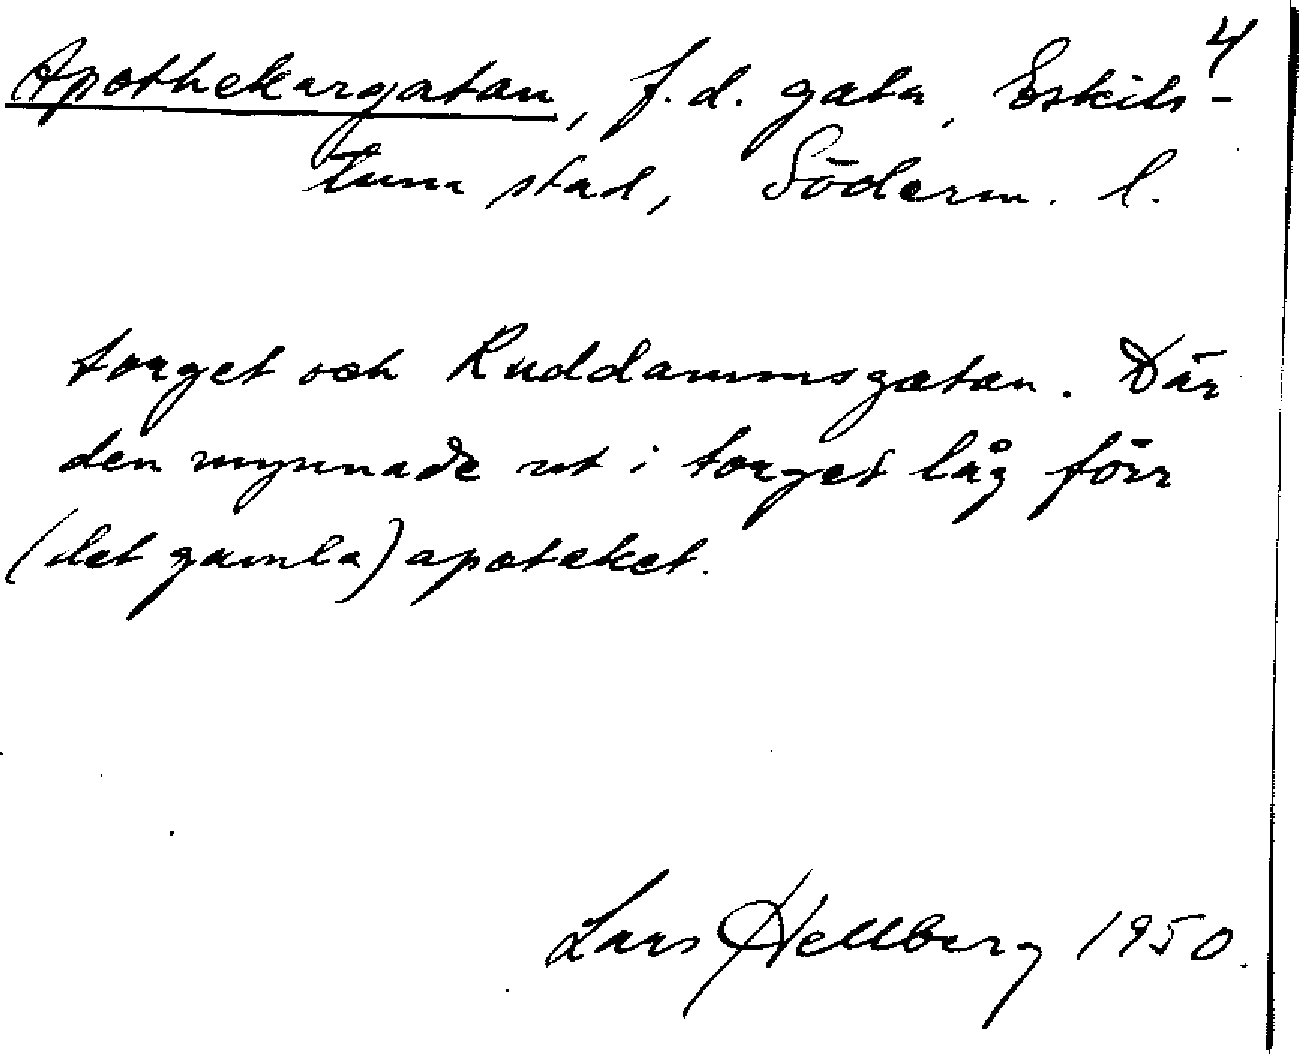 4
Apothekargatan, f.d. gata, Eskils-
tuna stad, Söderm. l.
torget och Ruddammsgatan. Där
den mynnade ut i torget låg förr
(det gamla) apoteket.
Lars Hellberg 1950.